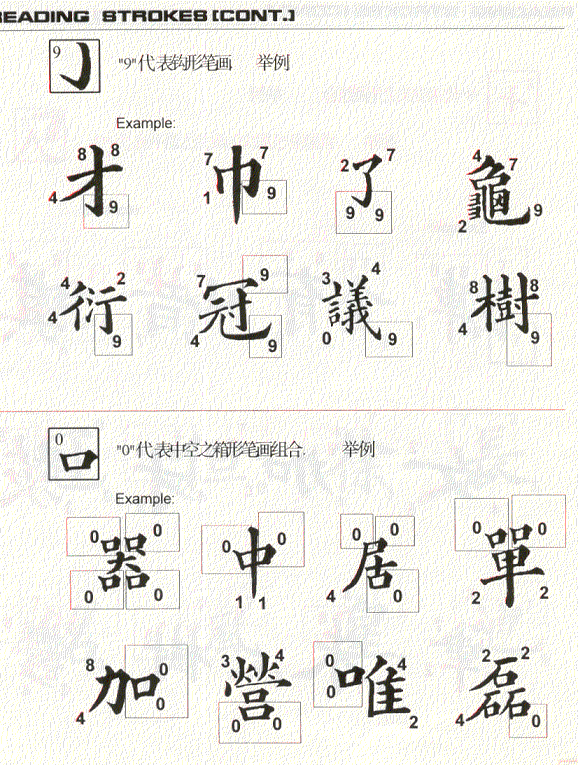 READING STROKES (CONT.)
9 "9"代表钩形笔画 举例
Example:
8 8 7 7 2 7 4 7
才 巾 了 龜
4 9 1 9 9 9 2 9
4 2 7 9 3 4 8 8
衍 冠 議 樹
4 9 4 9 0 9 4 9
0 口 "0"代表中空之箱形笔画组合. 举例
Example:
0 0 0 0 0 0 0 0
器 中 居 單
0 0 1 1 4 0 2 2
8 0 3 4 0 4 2 2
加 營 唯 磊
4 0 0 0 0 2 4 0